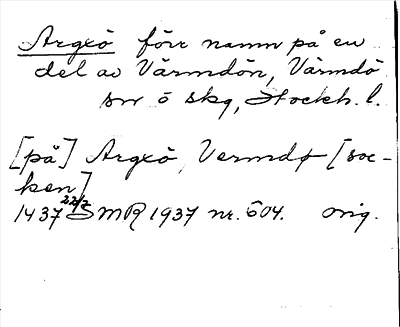 Argxö förr namn på en
del av Värmdön, Värmdö
sn ö skg, Stockh. l.
[på] Argxö, Vermdø [soc-
ken]
1437 22/2 SMR 1937 nr. 604. orig.